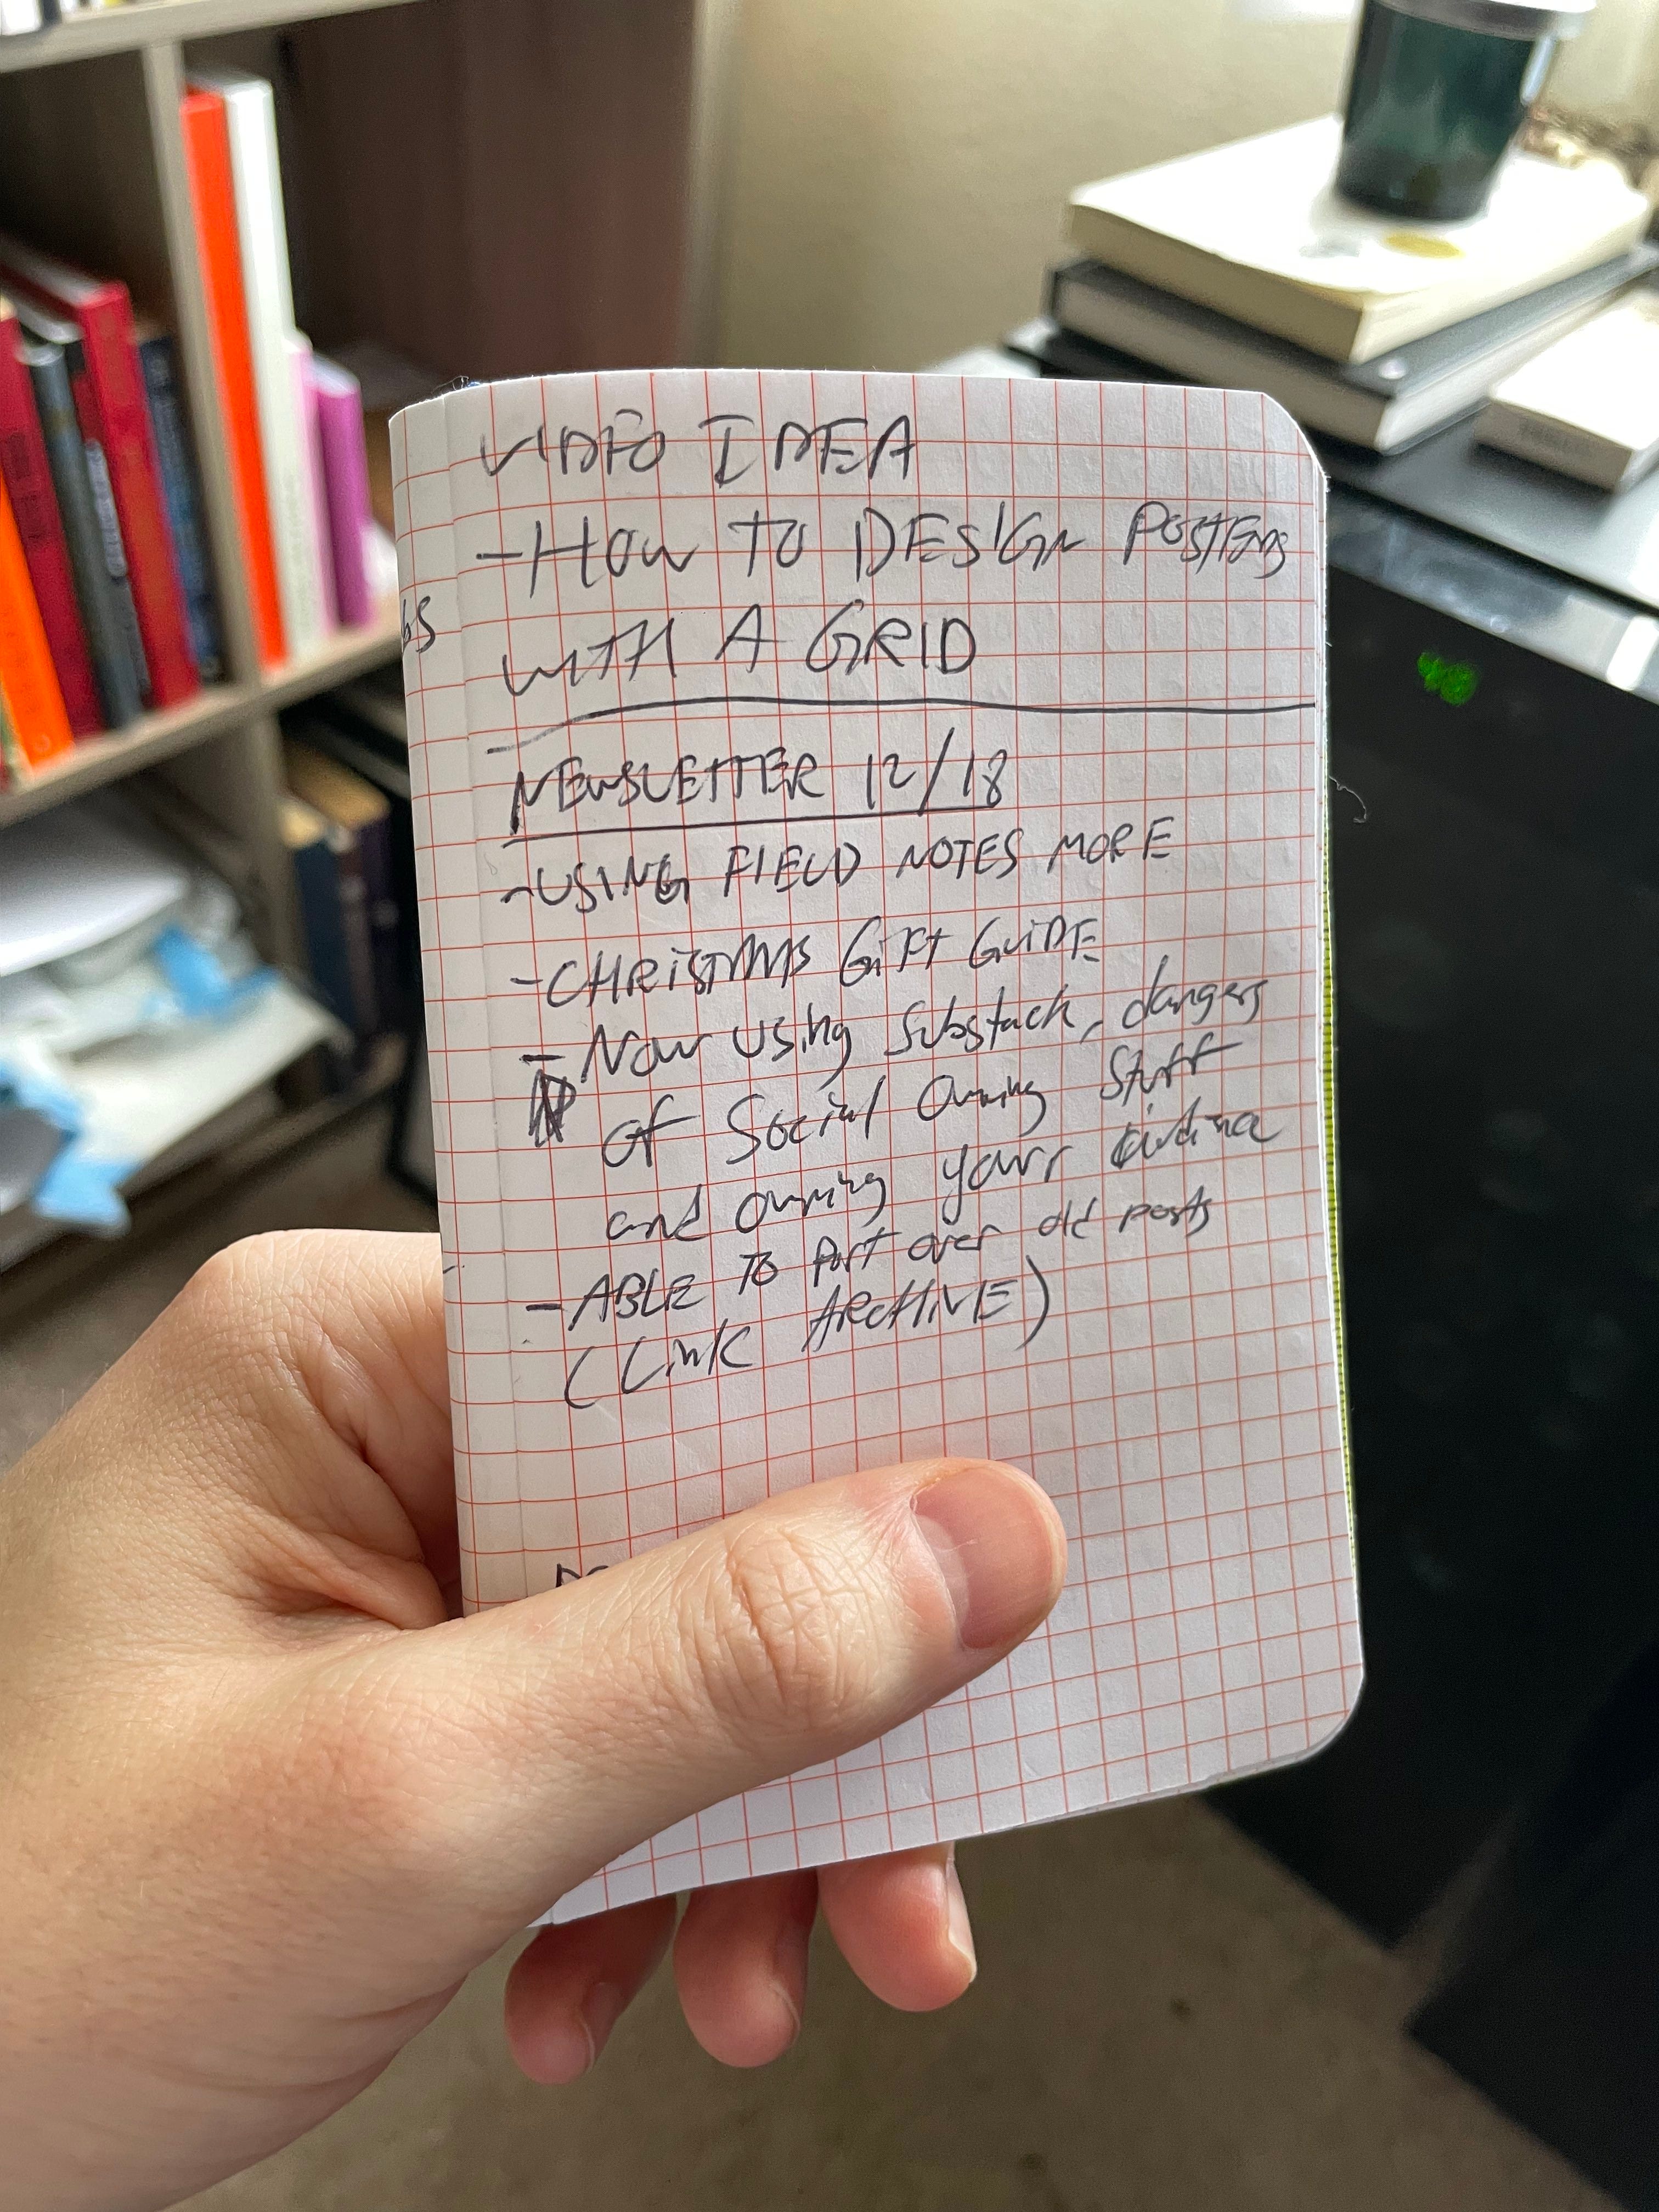 VIDEO IDEA
- HOW TO DESIGN POSTERS
WITH A GRID
NEWSLETTER 12/18
- USING FIELD NOTES MORE
- CHRISTMAS GIFT GUIDE
- Now using Substack, dangers
of Social Owning Stuff
and owning your audience
- ABLE TO Port over old posts
(Link ARCHIVE)